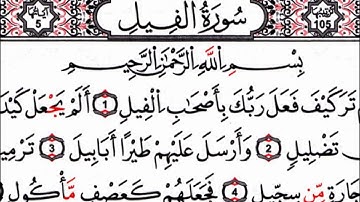 آياتها 5 سُورَةُ الْفِيلِ ترتيبها 105
بِسْمِ اللَّهِ الرَّحْمَٰنِ الرَّحِيمِ
تَرَ كَيْفَ فَعَلَ رَبُّكَ بِأَصْحَابِ الْفِيلِ 1 أَلَمْ يَجْعَلْ كَيْدَ
تَضْلِيلٍ 2 وَأَرْسَلَ عَلَيْهِمْ طَيْرًا أَبَابِيلَ 3 تَرْمِي
مِّن سِجِّيلٍ 4 فَجَعَلَهُمْ كَعَصْفٍ مَّأْكُولٍ